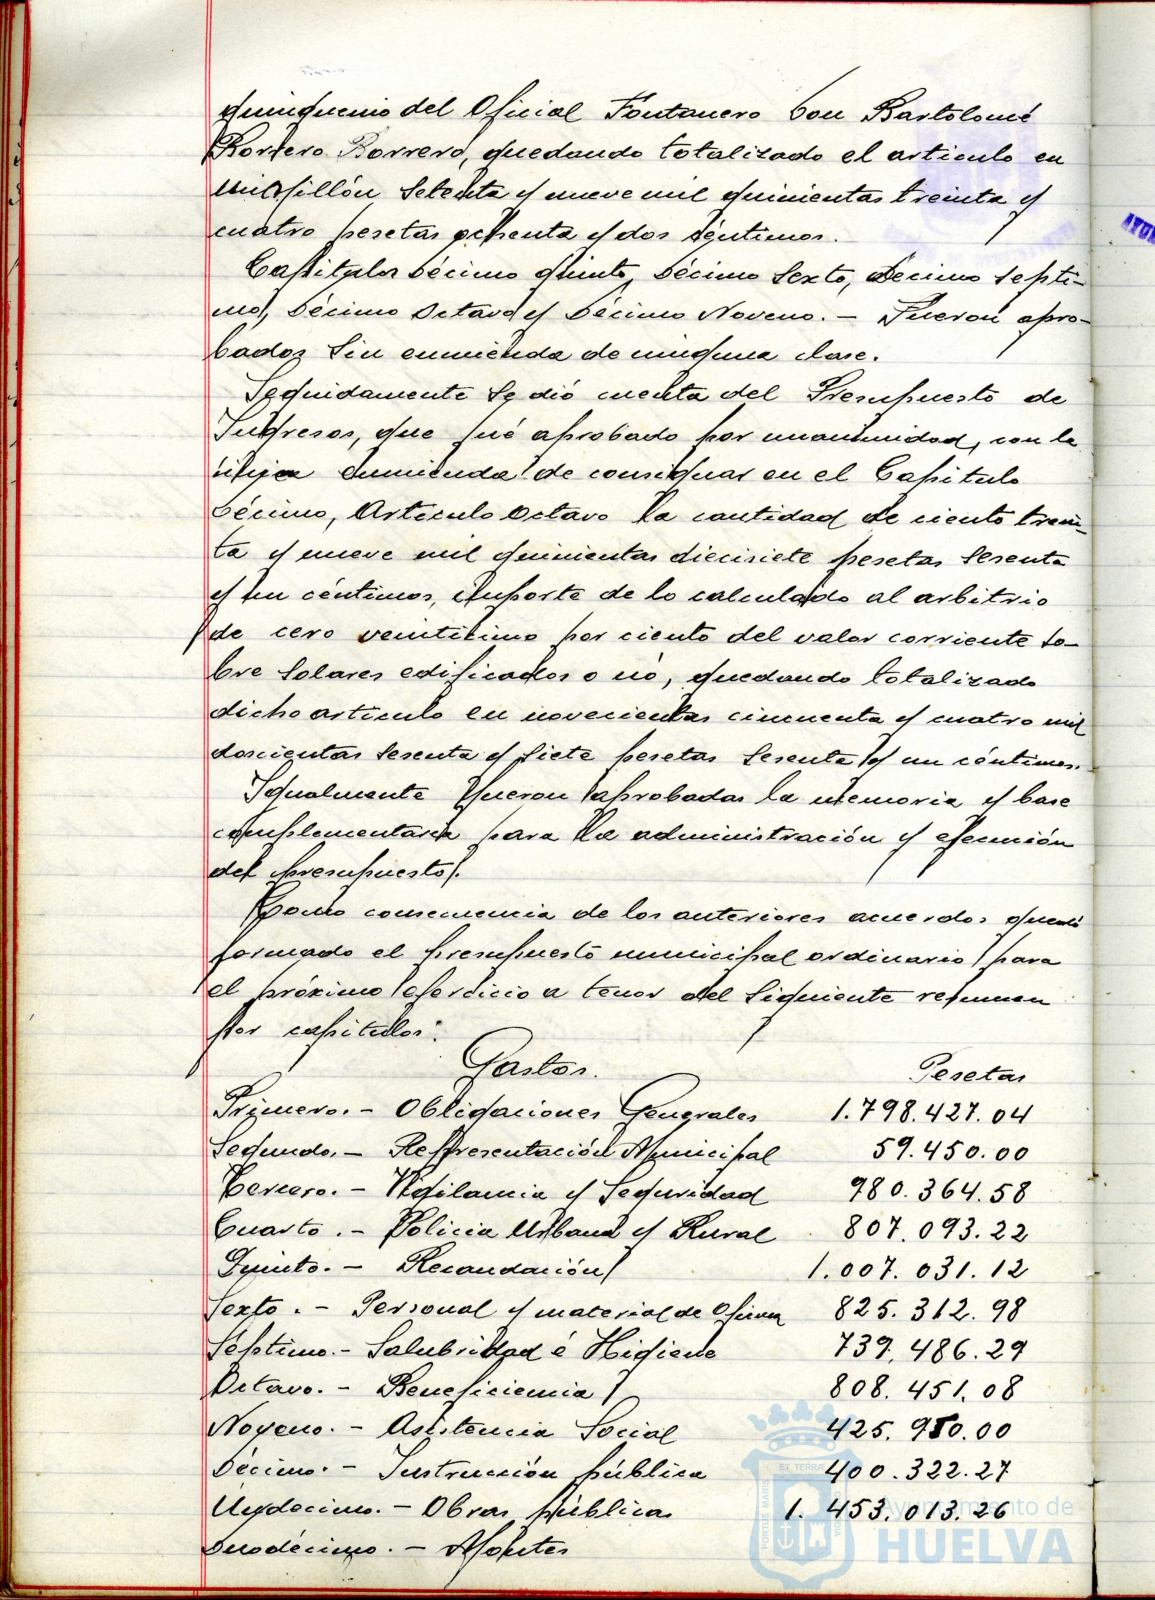 quinquenio del Oficial Fontanero Don Bartolomé
Borrero Borrero, quedando totalizado el articulo en
un millón setenta y nueve mil quinientas treinta y
cuatro pesetas ochenta y dos céntimos.
Capitulos Décimo quinto, Décimo Sexto, Décimo septi-
mo, Décimo Octavo y Décimo Noveno. - Fueron apro-
bados sin enmienda de ninguna clase.
Seguidamente se dió cuenta del Presupuesto de
Ingresos, que fué aprobado por unanimidad, con la
única enmienda de consignar en el Capitulo
Décimo, Articulo Octavo la cantidad de ciento trein-
ta y nueve mil quinientas diecisiete pesetas sesenta
y un céntimos, importe de lo calculado al arbitrio
de cero veinticinco por ciento del valor corriente so-
bre solares edificados o nó, quedando totalizado
dicho articulo en novecientas cincuenta y cuatro mil
doscientas sesenta y siete pesetas sesenta y un céntimos.
Igualmente fueron aprobadas la memoria y base
complementaria para la administración y ejecución
del presupuesto.
Como consecuencia de los anteriores acuerdos quedó
formado el presupuesto municipal ordinario para
el próximo ejercicio a tenor del siguiente resumen
por capitulos:
Gastos. Pesetas
Primero. - Obligaciones Generales 1.798.427.04
Segundo. - Representación Municipal 59.450.00
Tercero. - Vigilancia y Seguridad 980.364.58
Cuarto. - Policia Urbana y Rural 807.093.22
Quinto. - Recaudación 1.007.031.12
Sexto. - Personal y material de Oficina 825.312.98
Séptimo. - Salubridad é Higiene 739.486.29
Octavo. - Beneficiencia 808.451.08
Noveno. - Asistencia Social 425.980.00
Décimo. - Instrucción pública 400.322.27
Undecimo. - Obras públicas 1.453.013.26
Duodécimo. - Montes
Ayuntamiento de
HUELVA